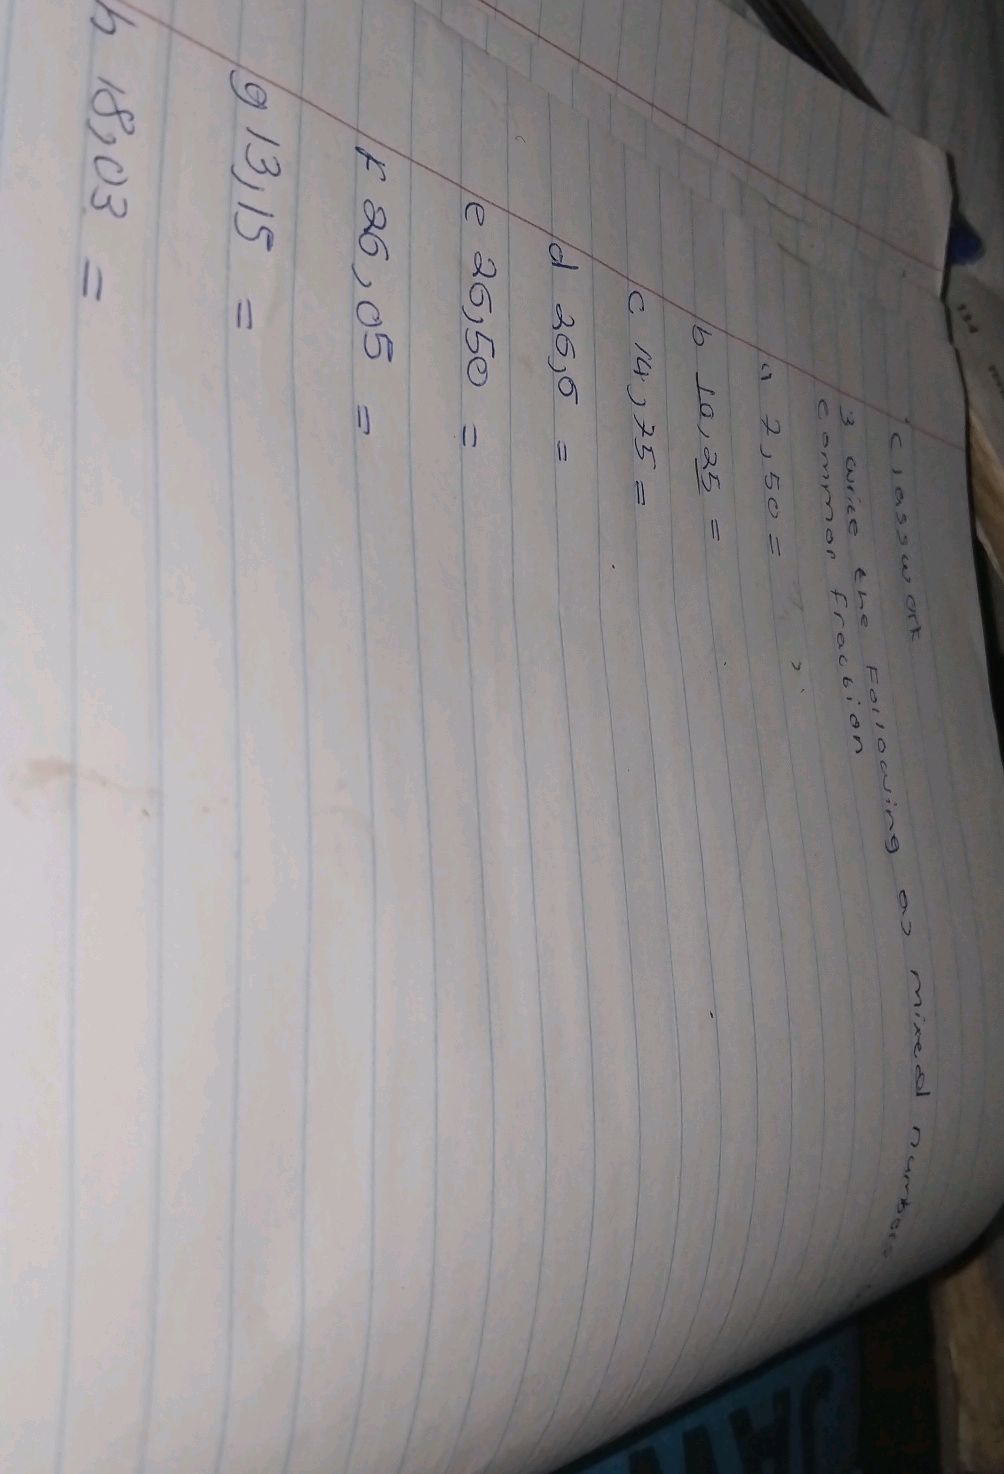 classwork
3 write the Following as mixed numbers
common fraction
a 7,50 =
b 10,25 =
c 14,75 =
d 26,6 =
e 26,50 =
F 26,05 =
g 13,15 =
h 18,03 =